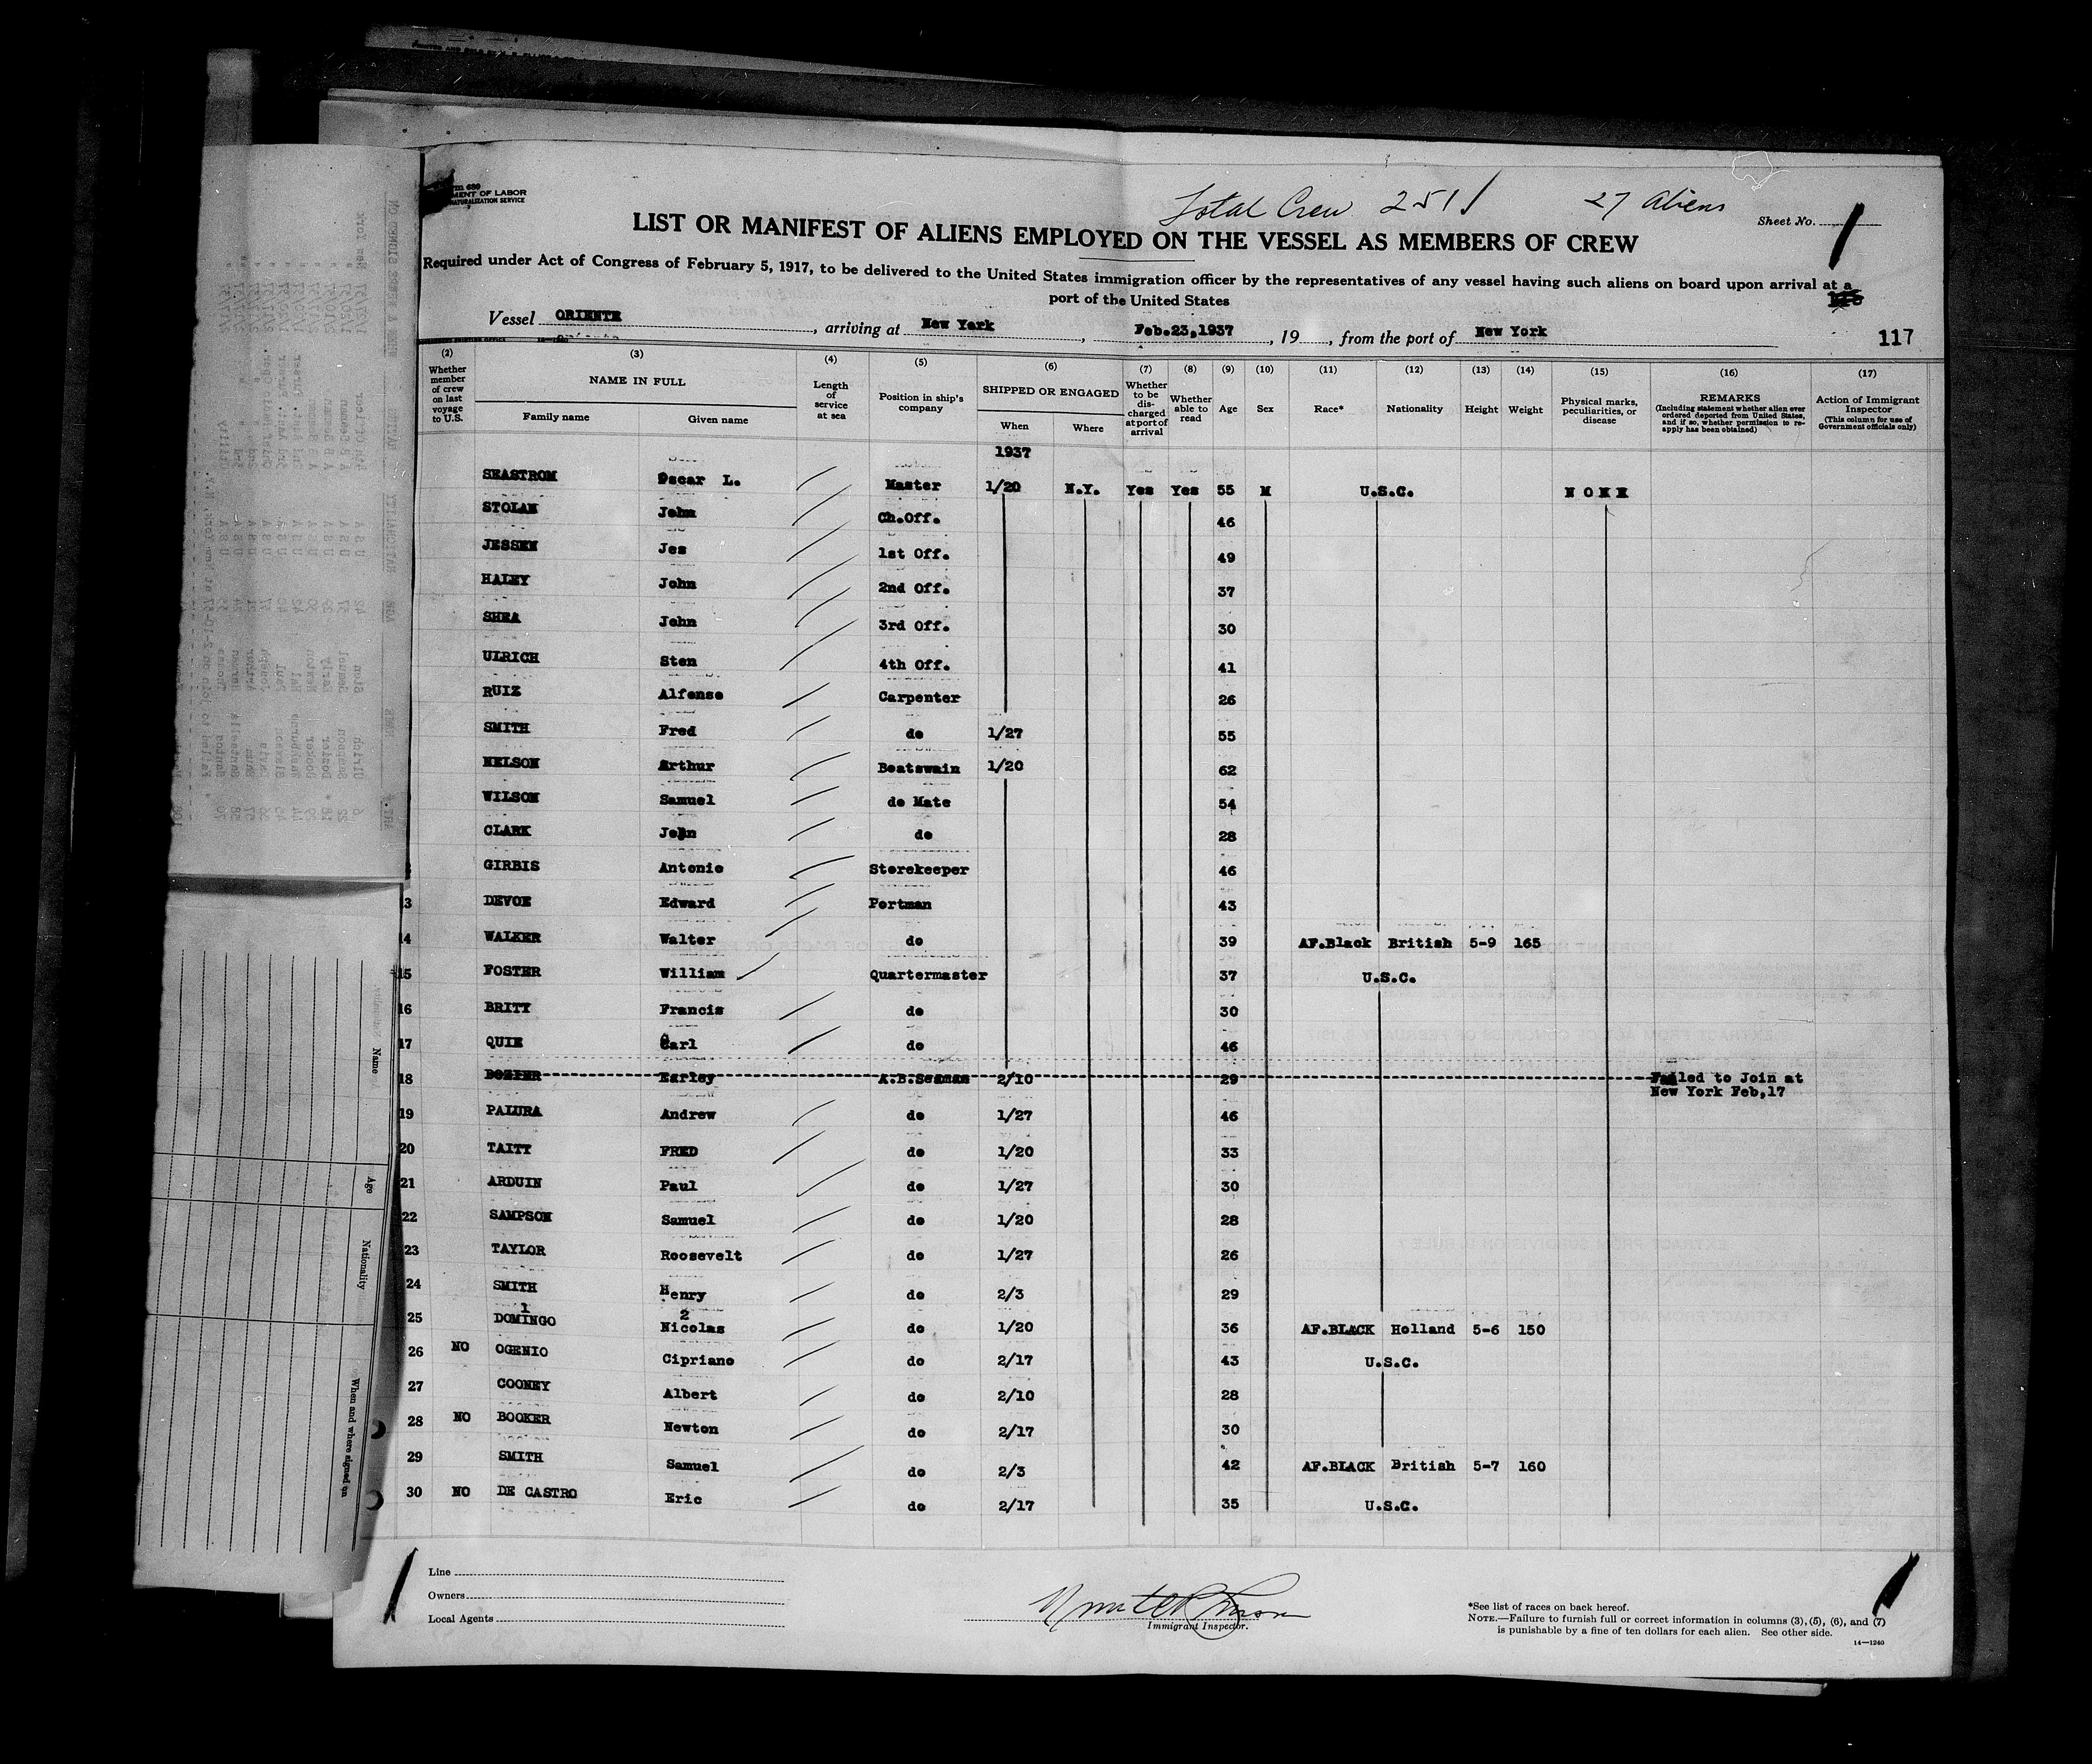 Total Crew 251
27 Aliens
MENT OF LABOR
NATURALIZATION SERVICE
Sheet No. 1
LIST OR MANIFEST OF ALIENS EMPLOYED ON THE VESSEL AS MEMBERS OF CREW
Required under Act of Congress of February 5, 1917, to be delivered to the United States immigration officer by the representatives of any vessel having such aliens on board upon arrival at a
port of the United States
Vessel ORIENTE, arriving at New York, Feb.23,1937, 19, from the port of New York
117
(2) (3) (4) (5) (6) (7) (8) (9) (10) (11) (12) (13) (14) (15) (16) (17)
Whether member of crew on last voyage to U.S.
NAME IN FULL
Family name Given name
Length of service at sea
Position in ship's company
SHIPPED OR ENGAGED
When Where
Whether to be discharged at port of arrival
Whether able to read
Age
Sex
Race*
Nationality
Height
Weight
Physical marks, peculiarities, or disease
REMARKS
(Including statement whether alien ever ordered deported from United States, and if so, whether permission to re-apply has been obtained)
Action of Immigrant Inspector
(This column for use of Government officials only)
1937
SEASTROM Oscar L. Master 1/20 N.Y. Yes Yes 55 M U.S.C. NONE
STOLAN John Ch.Off. 46
JESSEN Jes 1st Off. 49
HALEY John 2nd Off. 37
SHEA John 3rd Off. 30
ULRICH Sten 4th Off. 41
RUIZ Alfonso Carpenter 26
SMITH Fred do 1/27 55
NELSON Arthur Boatswain 1/20 62
WILSON Samuel do Mate 54
CLARK John do 28
GIRBIS Antonio Storekeeper 46
13 DEVOE Edward Portman 43
14 WALKER Walter do 39 AF.Black British 5-9 165
15 FOSTER William Quartermaster 37 U.S.C.
16 BRITT Francis do 30
17 QUIE Carl do 46
18 DOZIER Earley A.B.Seaman 2/10 29 Failed to Join at
New York Feb,17
19 PALURA Andrew do 1/27 46
20 TAITT FRED do 1/20 33
21 ARDUIN Paul do 1/27 30
22 SAMPSON Samuel do 1/20 28
23 TAYLOR Roosevelt do 1/27 26
24 SMITH Henry do 2/3 29
1 2
25 DOMINGO Nicolas do 1/20 36 AF.BLACK Holland 5-6 150
26 NO OGENIO Cipriano do 2/17 43 U.S.C.
27 COONEY Albert do 2/10 28
28 NO BOOKER Newton do 2/17 30
29 SMITH Samuel do 2/3 42 AF.BLACK British 5-7 160
30 NO DE CASTRO Eric do 2/17 35 U.S.C.
Name
Age
Nationality
When and where signed on
Line
Owners
Local Agents
Immigrant Inspector.
*See list of races on back hereof.
NOTE.—Failure to furnish full or correct information in columns (3), (5), (6), and (7)
is punishable by a fine of ten dollars for each alien. See other side.
14—1240